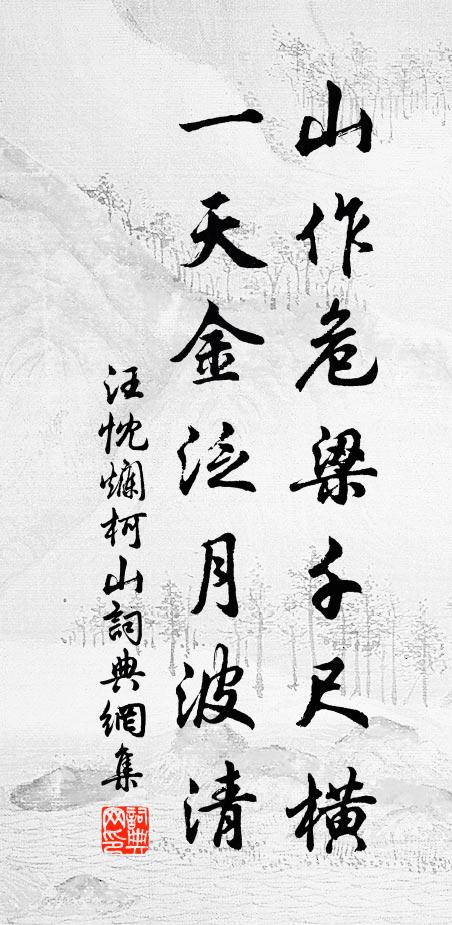 山作危梁千尺橫
一天金泛月波清
汪忱爛柯山詞典網集
詞典網印